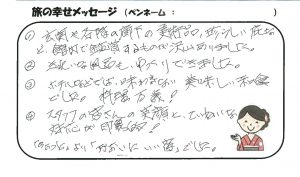 旅の幸せメッセージ（ペンネーム： ）
① 玄関や各階の廊下の美術品、珍しい花など、館内で鑑賞するものが沢山ありました。
② お風呂もゆっくりできました。
③ ホテルなどでは味わえない美味しい和食でした。料理万歳！
④ スタッフの皆さんの笑顔と、ていねいな対応が印象的！
より「 いい 宿」でした。